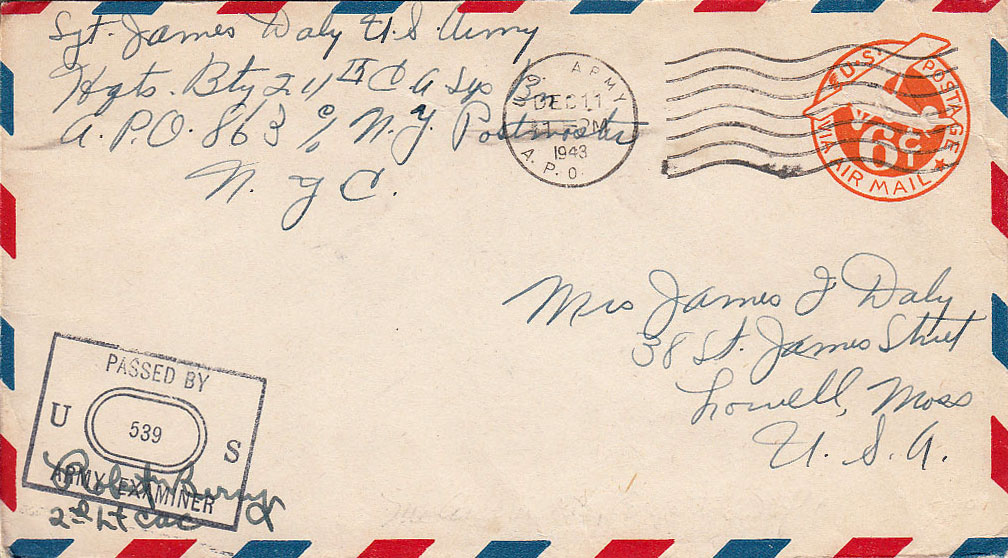 Sgt. James Daly U.S Army
Hqts. Bty 2 11th C A Sep Bn
A. P.O. 863 c/o N.Y. Postmaster
N. Y C.
U.S. ARMY
DEC 11
PM
1943
A. P. O.
U.S. POSTAGE
6¢
VIA AIR MAIL
Mrs James J Daly
38 St. James Street
Lowell, Mass
U. S. A.
PASSED BY
U 539 S
ARMY EXAMINER
Robert
2nd Lt CAC